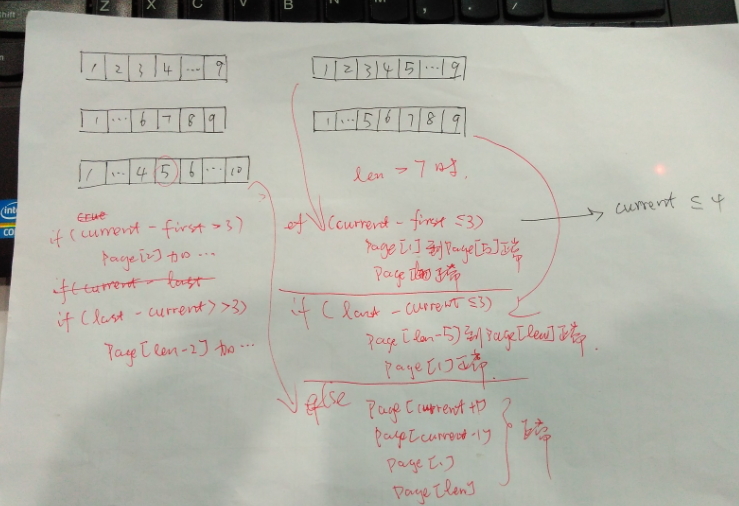 Shift
Z
X
C
V
B
N
M
1 2 3 4 … 9
1 … 6 7 8 9
1 … 4 5 6 … 10
if (current - first > 3)
Page[2] 加 …
if (current - last
if (last - current) > 3)
Page[len-2] 加 …
1 2 3 4 5 … 9
1 … 5 6 7 8 9
len > 7 时.
if (current - first ≤ 3)
current ≤ 4
Page[1] 到 Page[5] 正常
Page 正常
if (last - current ≤ 3)
Page[len-5) 到 Page[len] 正常.
Page[1] 正常.
else
Page[current+1)
Page[current-1)
Page[1]
Page[len]
正常
intel
CO